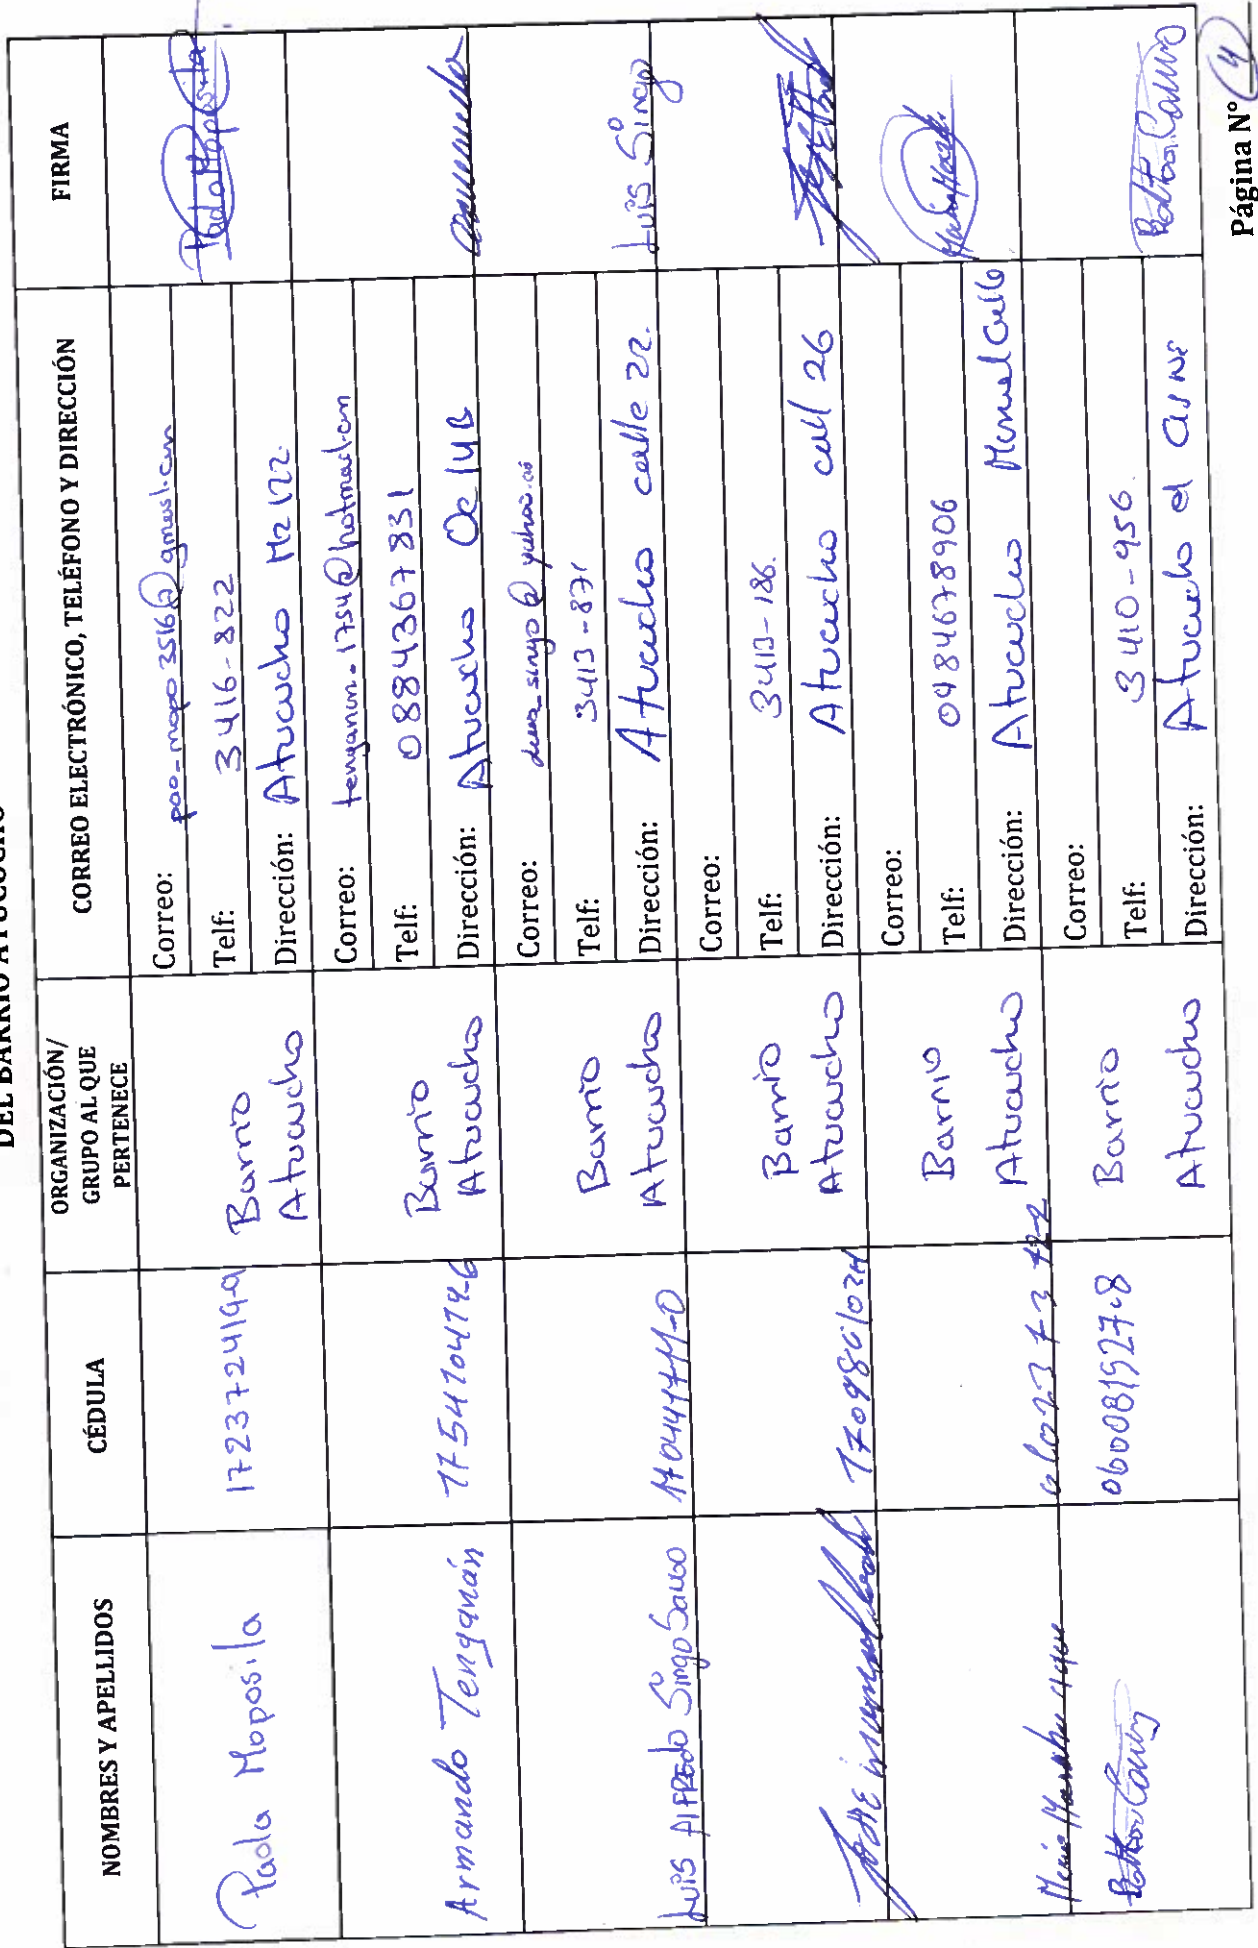 DEL BARRIO ATUCUCHO
NOMBRES Y APELLIDOS
CÉDULA
ORGANIZACIÓN/
GRUPO AL QUE
PERTENECE
CORREO ELECTRÓNICO, TELÉFONO Y DIRECCIÓN
FIRMA
Paola Moposila
1723724199
Barrio
Atucucho
Correo: pao_mopo3516@gmail.com
Telf: 3416-822
Dirección: Atucucho Mz 122
Paola Moposita
Armando Tenganán
175470474-6
Barrio
Atucucho
Correo: tenganan-1754@hotmail.com
Telf: 0884367831
Dirección: Atucucho Oe 14B
Luis Alfredo Singo
Barrio
Atucucho
Correo:
Telf: 3413-871
Dirección: Atucucho calle 22.
Luis Singo
Barrio
Atucucho
Correo:
Telf: 3413-186.
Dirección: Atucucho call 26
Barrio
Atucucho
Correo:
Telf: 0984678906
Dirección: Atucucho
060081527-8
Barrio
Atucucho
Correo:
Telf: 3410-956.
Dirección: Atucucho el
Página N° 4